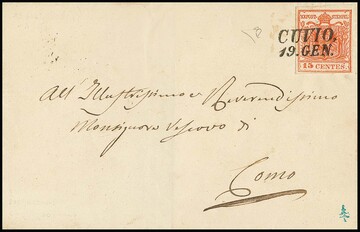 CUVIO.
19. GEN.
15 CENTES.
All Illustrissimo e Reverendissimo
Monsignore Vescovo di
Como